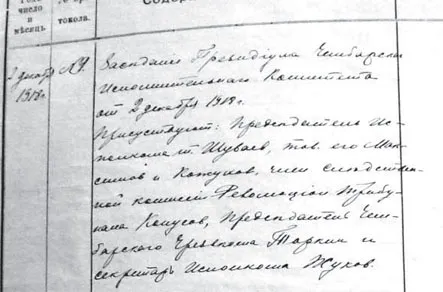 число
и
мѣсяцъ
токола.
2 декабря
1918г.
№
Заседанiе Президiума Чембарск.
Исполнительнаго Комитета
от 2 декабря 1918г.
Присуствуют: Председатель Ис-
полкома т. Шуваев, тов. его Мак-
симов и Кожухов, член следствен-
ной комиссiи Революцiон. Трибу-
нала Конусов, Председатель Чем-
барского Чрезвкома Таркин и
секретарь Исполкома Жуков.